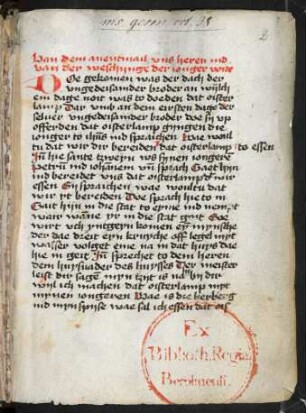 ms. germ. oct. 35
2
Van dem auentmail vns heren ind
van der weschunge der ionger voisse
DOe gekomen was der dach der
vngedeisander broder an wilch
em dage noit was to doeden dat oister
lamp Dar vmb an dem eirsten dage der
seluer vngedeisander broder doe sy up
offerden dat oisterlamp gyngen die
ionger to ihus ind sprachen Wae woil
tu dat wir dir bereiden dat oisterlamp to essen
In hie sante tzweyn vys synen iongere
Petrum ind iohannem vnd sprach Gaet hyn
ind bereidet vns dat oisterlamp dat wir
essen En sprachen wae woiltu dat
wir yt bereiden Doe sprach hie to in
Gait hyn in die stat to eyme ind nemt
wair wanne yr in die stat geit Soe
wirt uch intgeyn komen eyn mynsche
der dae dreit eyn kruyche off legel myt
wasser volget eme na in dat huys dae
hie in geit Ind sprechet to dem heren
dem huysuader des huysses Der meister
leist dir sagen myn tzyt is nae by dir
wil ich machen dat oisterlamp myt
mynen iongeren Wae is die herberg
ind myn spyse wae sal ich essen dat ois
Ex
Biblioth. Regia
Berolinensi.